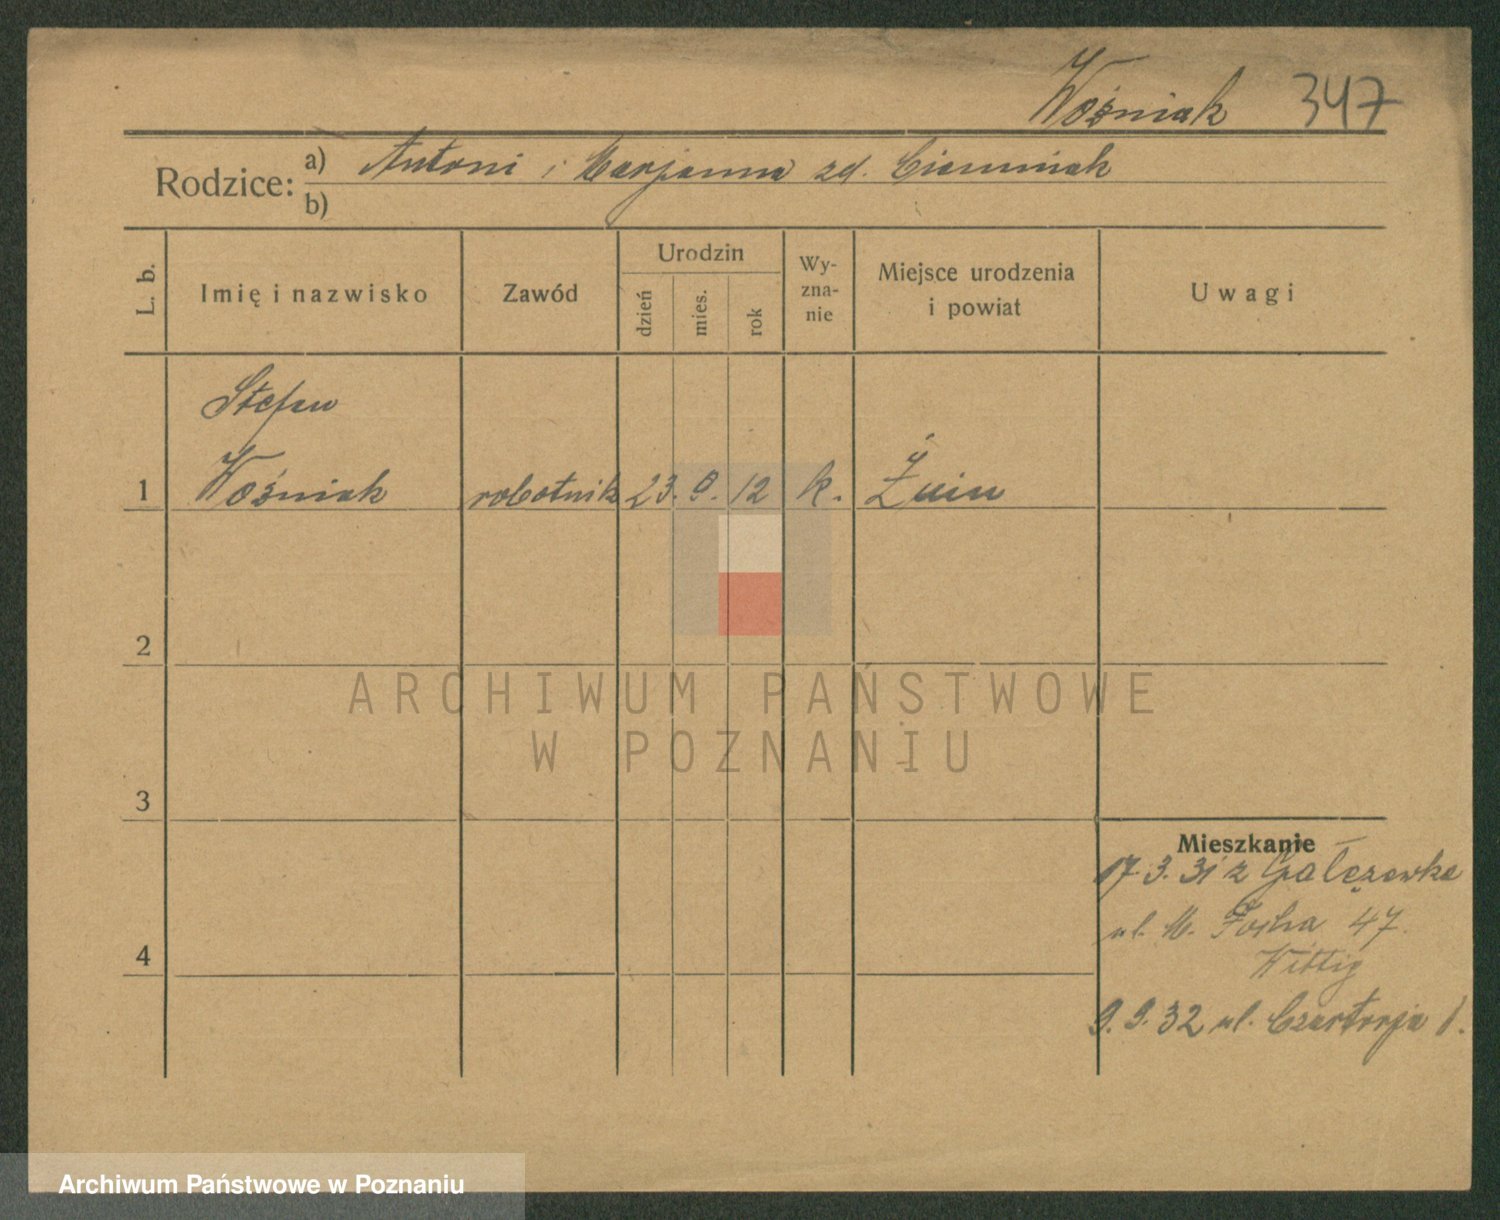 Woźniak 347
Rodzice: a) Antoni i Marjanna zd. Ciemniak
b)
L. b.
Imię i nazwisko
Zawód
Urodzin
dzień
mies.
rok
Wy-
zna-
nie
Miejsce urodzenia
i powiat
Uwagi
Stefan
1 Woźniak robotnik 23. 9. 12 k. Żnin
2
ARCHIWUM PAŃSTWOWE
W POZNANIU
3
Mieszkanie
17.3.31 z Gałęzewka
ul. M. Focha 47.
4
Wittig
9.9.32 ul. Czartorja 1.
Archiwum Państwowe w Poznaniu